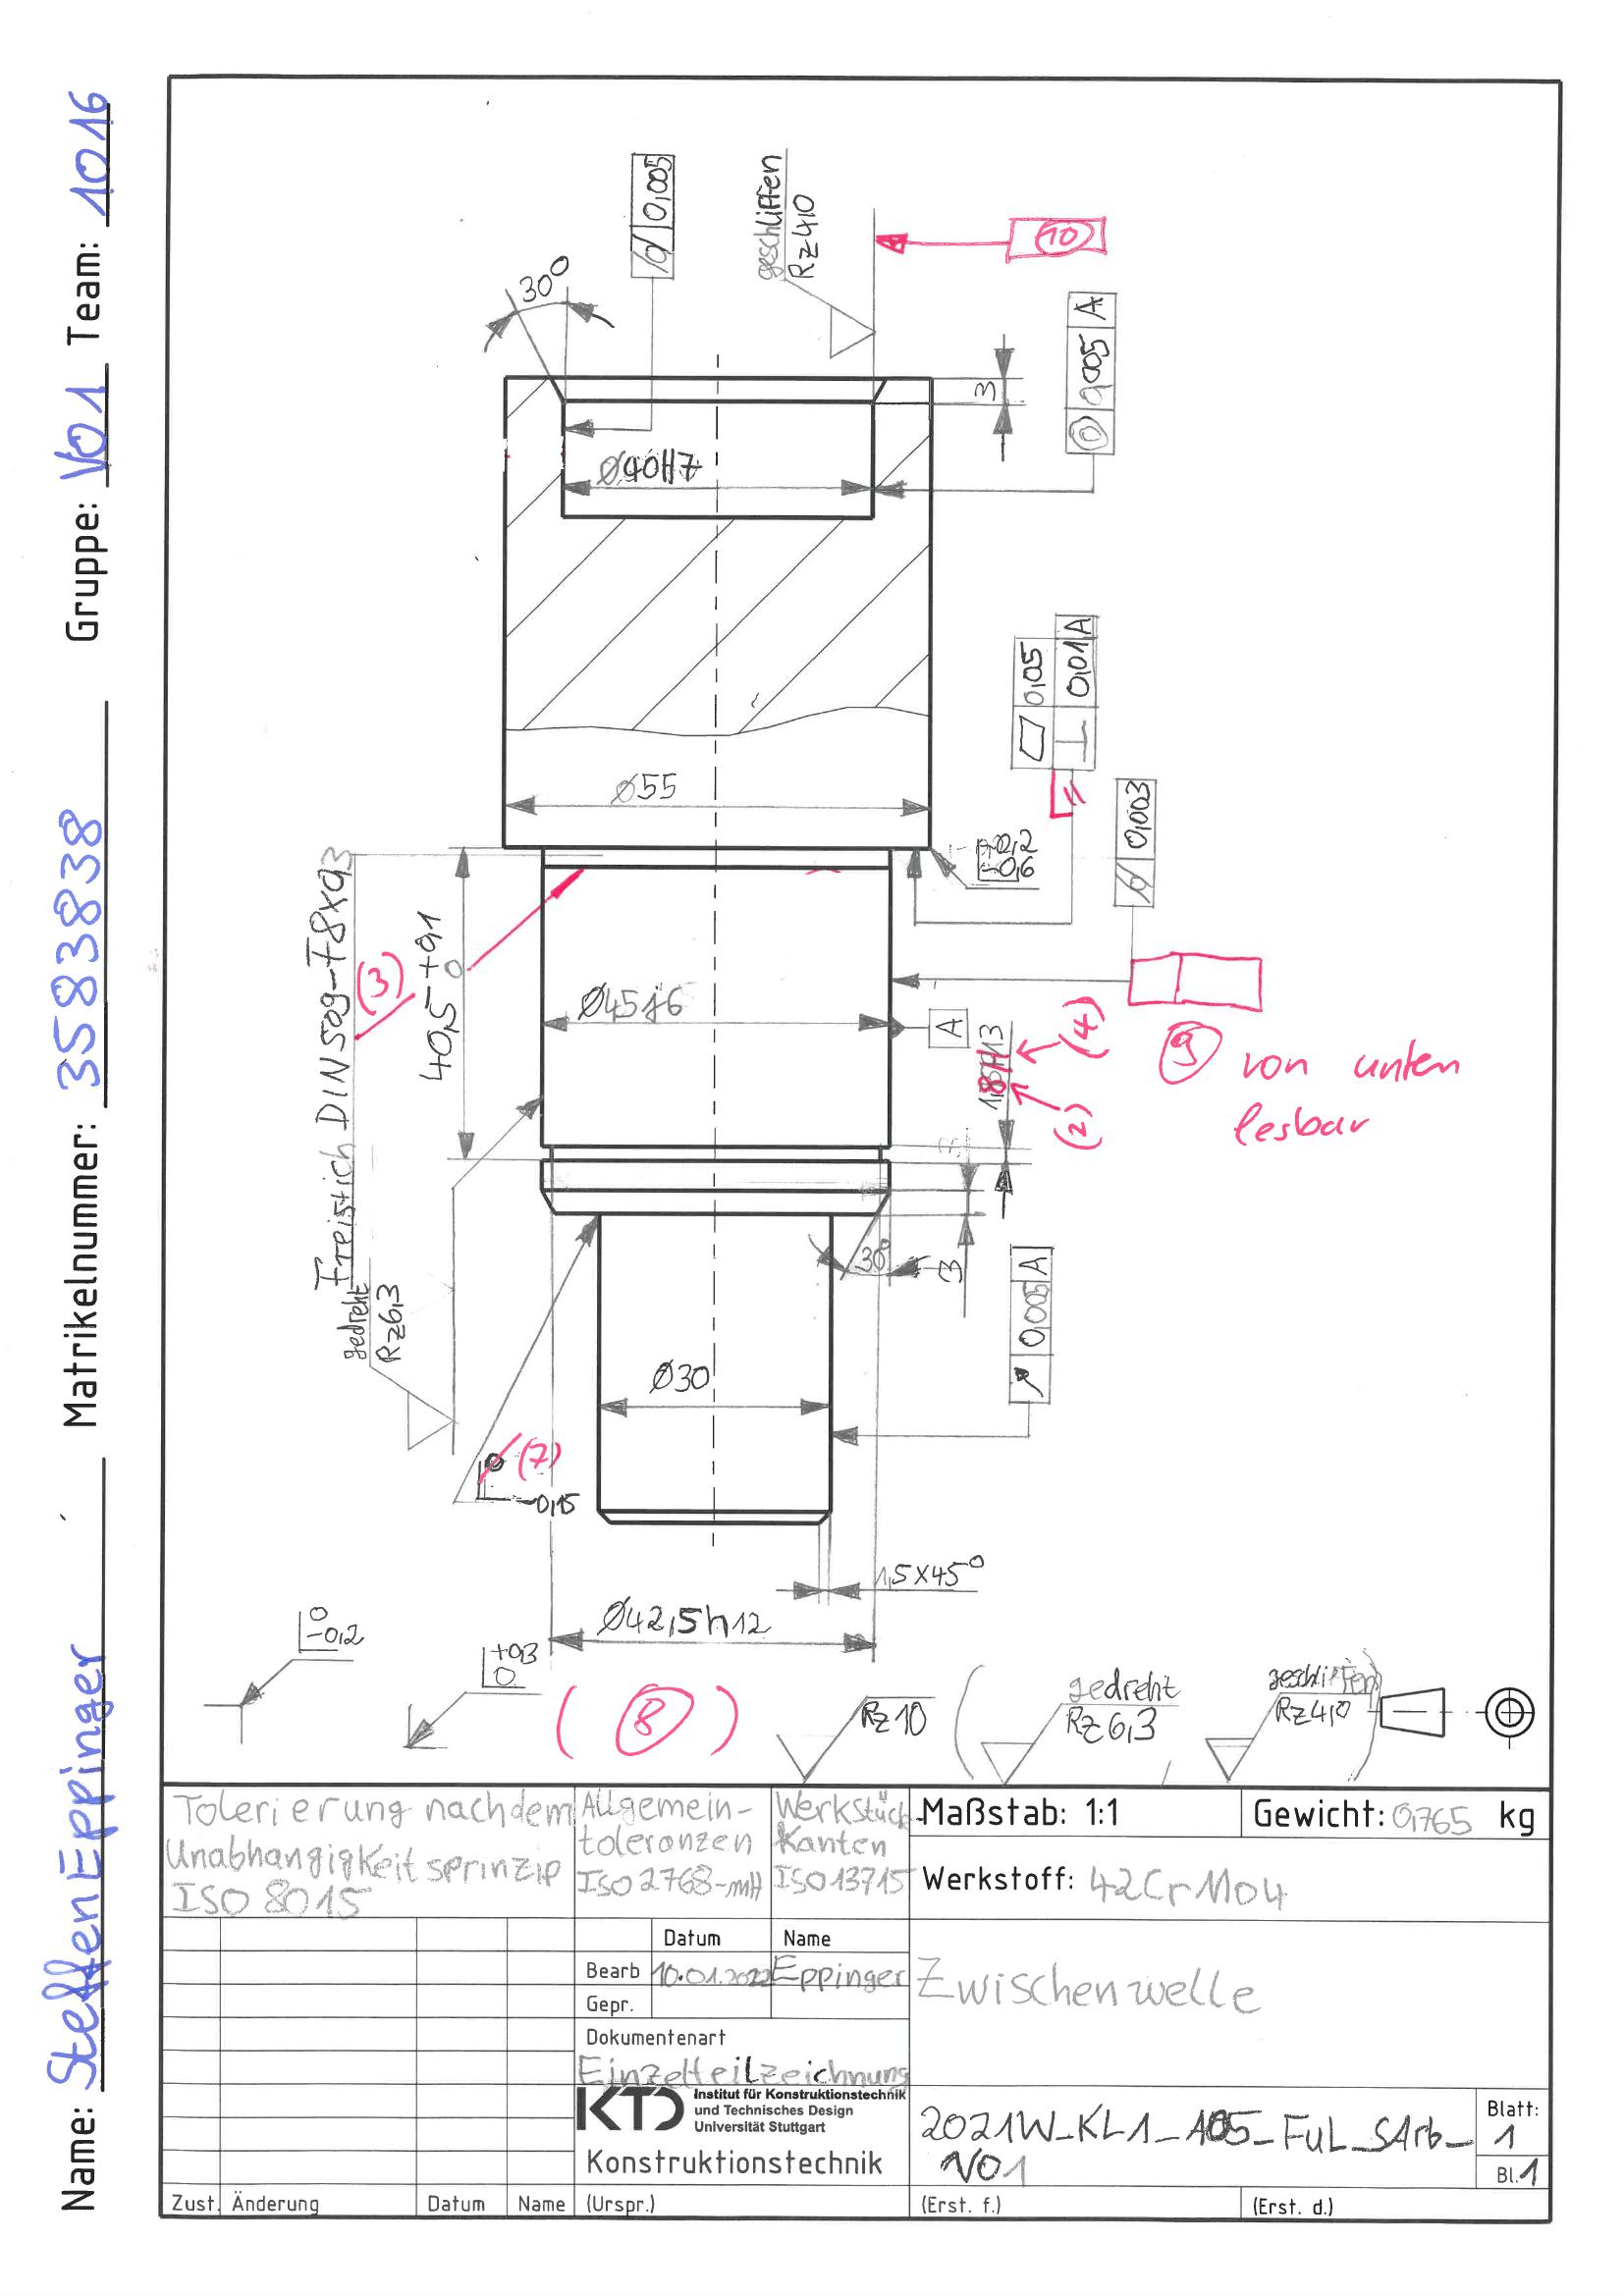 Name: Steffen Eppinger Matrikelnummer: 3583838 Gruppe: V01 Team: 1016
0,005
geschliffen
Rz4,0
(10)
30°
0,005 A
3
Ø40H7
0,05
0,01 A
Ø55
+0,2
-0,6
0,003
Freistich DIN509-F8x0,3
(3)
40,5 +0,1
0
Ø45j6
A
1,8H13
(4)
(2)
(9) von unten
lesbar
gedreht
Rz6,3
30°
3
0,005 A
Ø30
0
(7)
-0,15
1,5x45°
Ø42,5h12
0
-0,2
+0,3
0
(8)
Rz10
gedreht
Rz6,3
geschliffen
Rz4,0
Tolerierung nach dem
Unabhängigkeitsprinzip
ISO 8015
Allgemein-
toleranzen
ISO2768-mH
Werkstück
Kanten
ISO13715
Maßstab: 1:1
Gewicht: 0,765 kg
Werkstoff: 42CrMo4
Datum Name
Bearb 10.01.2022 Eppinger
Gepr.
Zwischenwelle
Dokumentenart
Einzelteilzeichnung
KTD Institut für Konstruktionstechnik
und Technisches Design
Universität Stuttgart
Konstruktionstechnik
2021W_KL1_A05_FuL_SArb_
V01
Blatt:
1
Bl. 1
Zust. Änderung Datum Name (Urspr.) (Erst. f.) (Erst. d.)